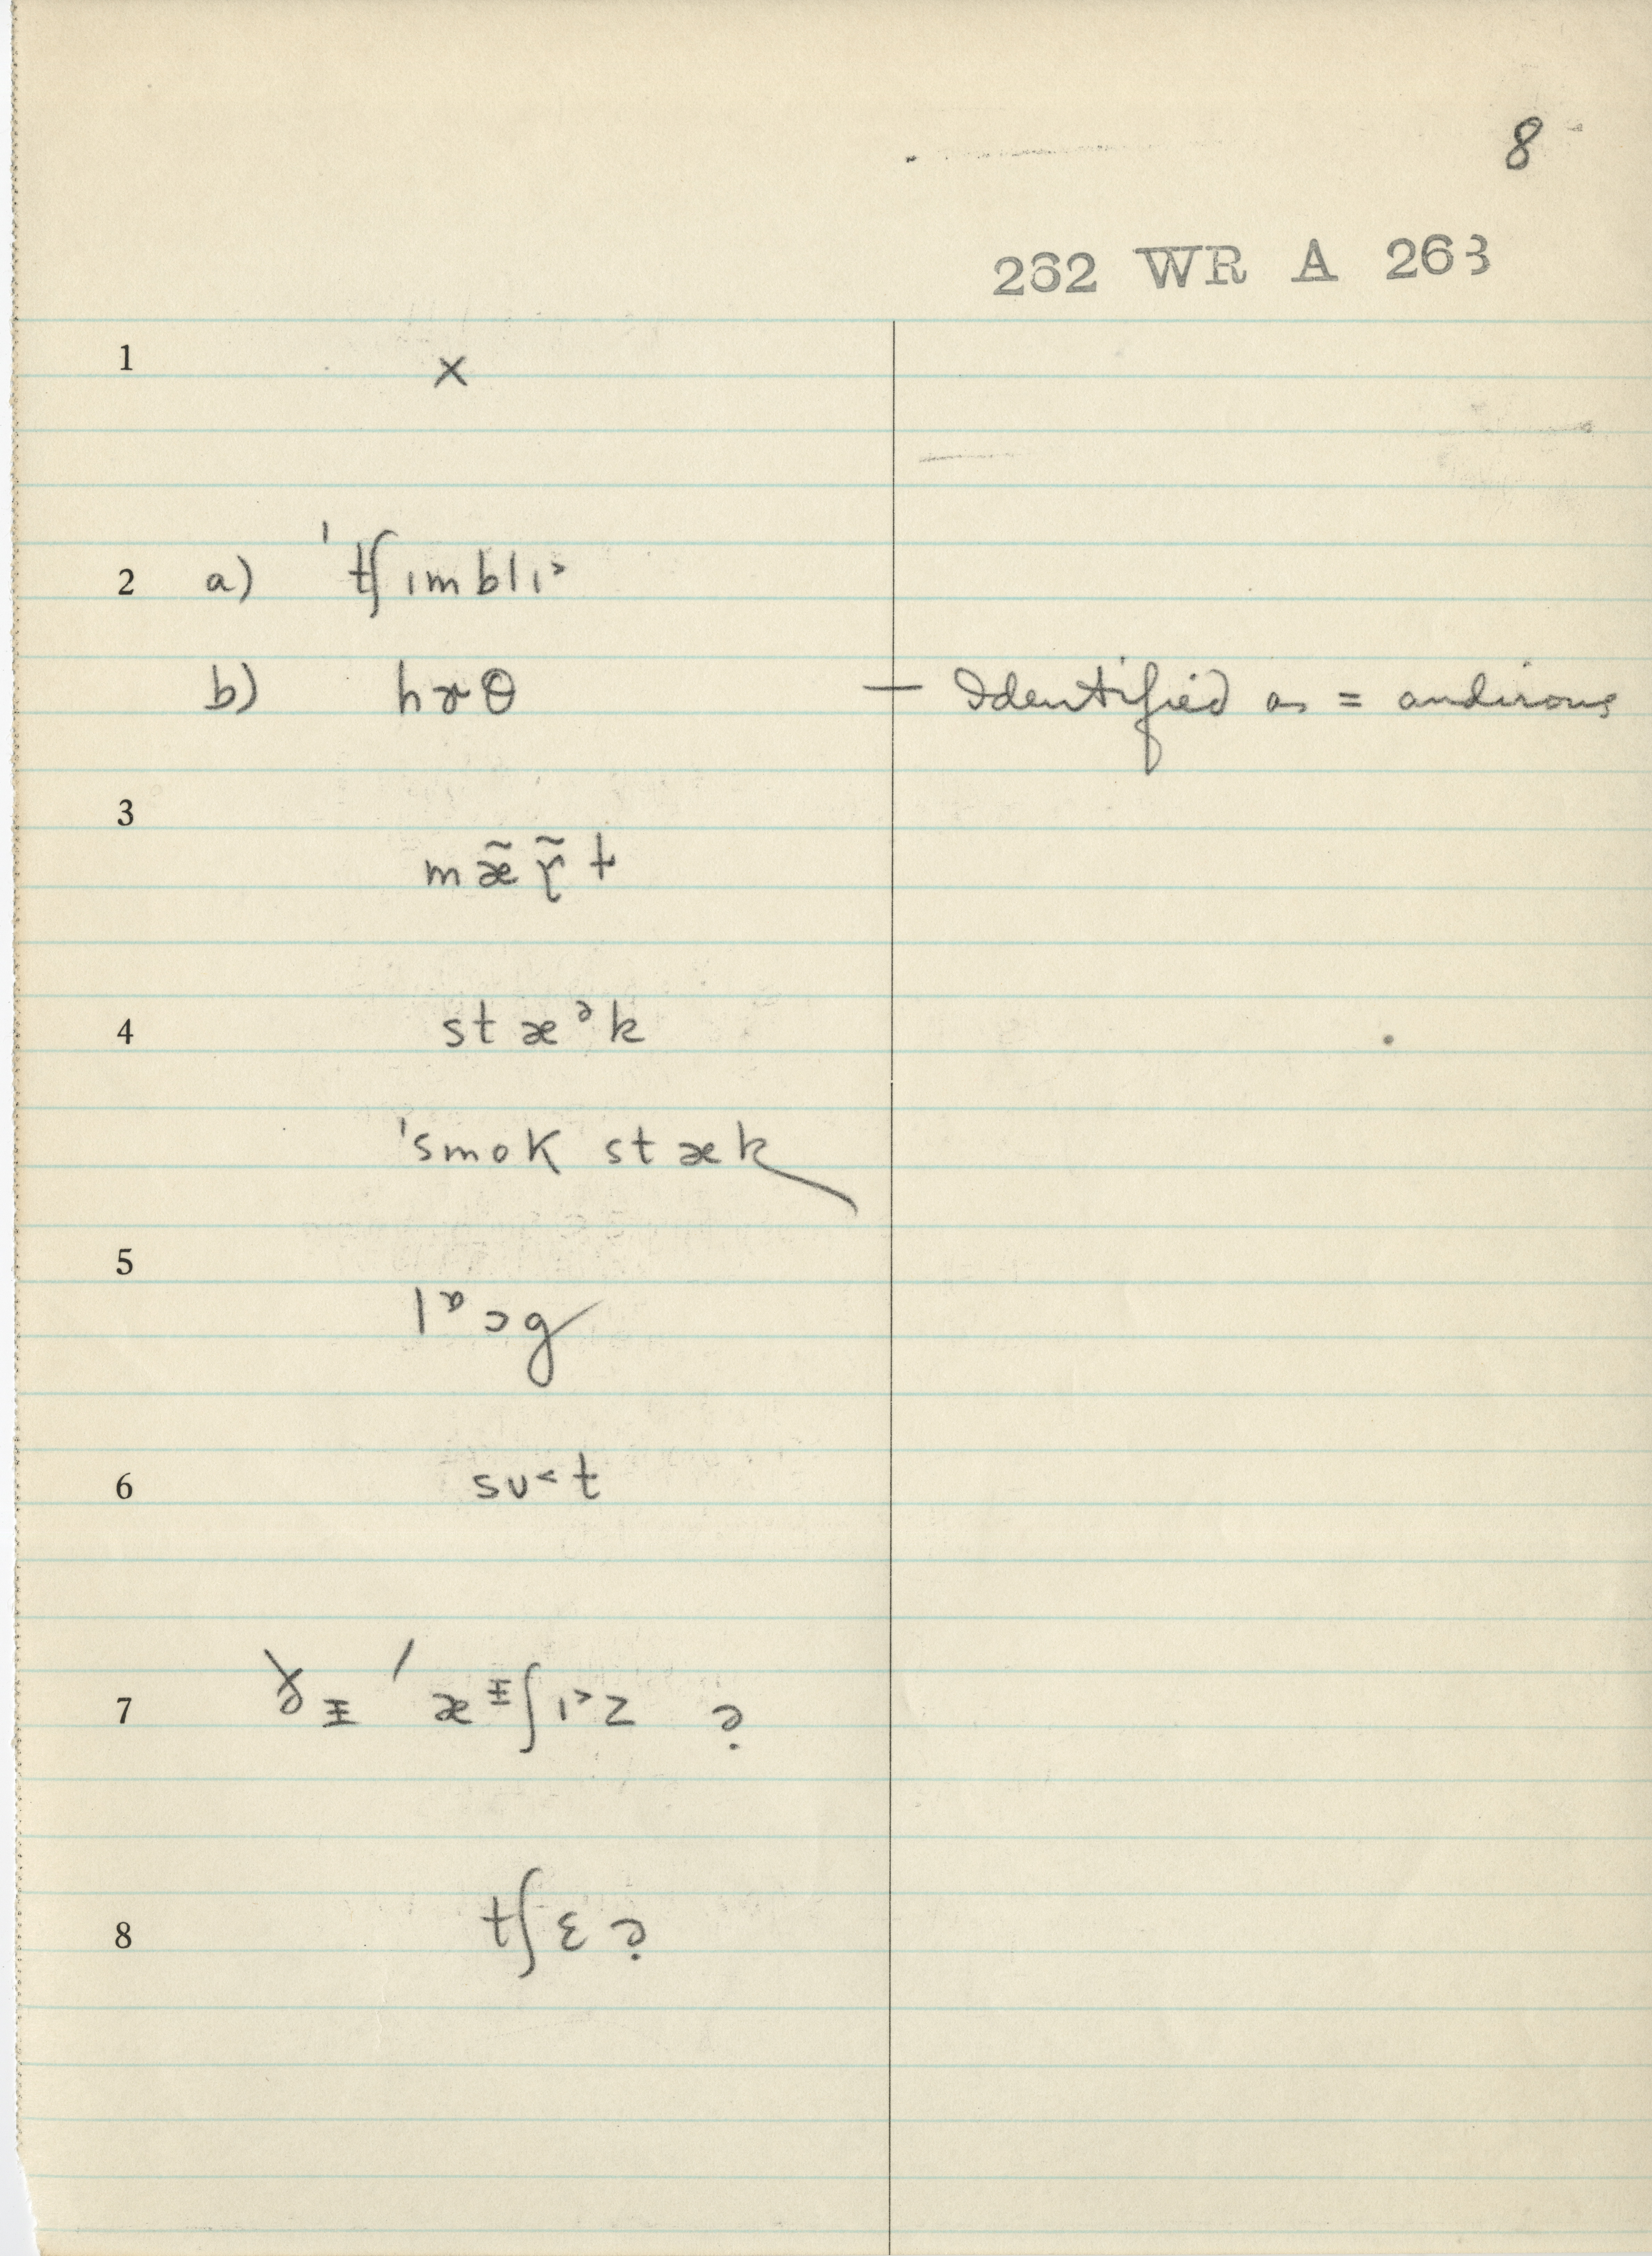 8
262 WR A 263
1 x
2 a) ˈtʃɪmblɪ˃
b) hɚθ — Identified as = andirons
3 mæ̃ɾ̃t
4 stæᵊk
ˈsmok stæk
5 lᶛɔg
6 sʊ˂t
7 ðɪ ˈæᶤʃɪ˃z ?
8 tʃɛ ?